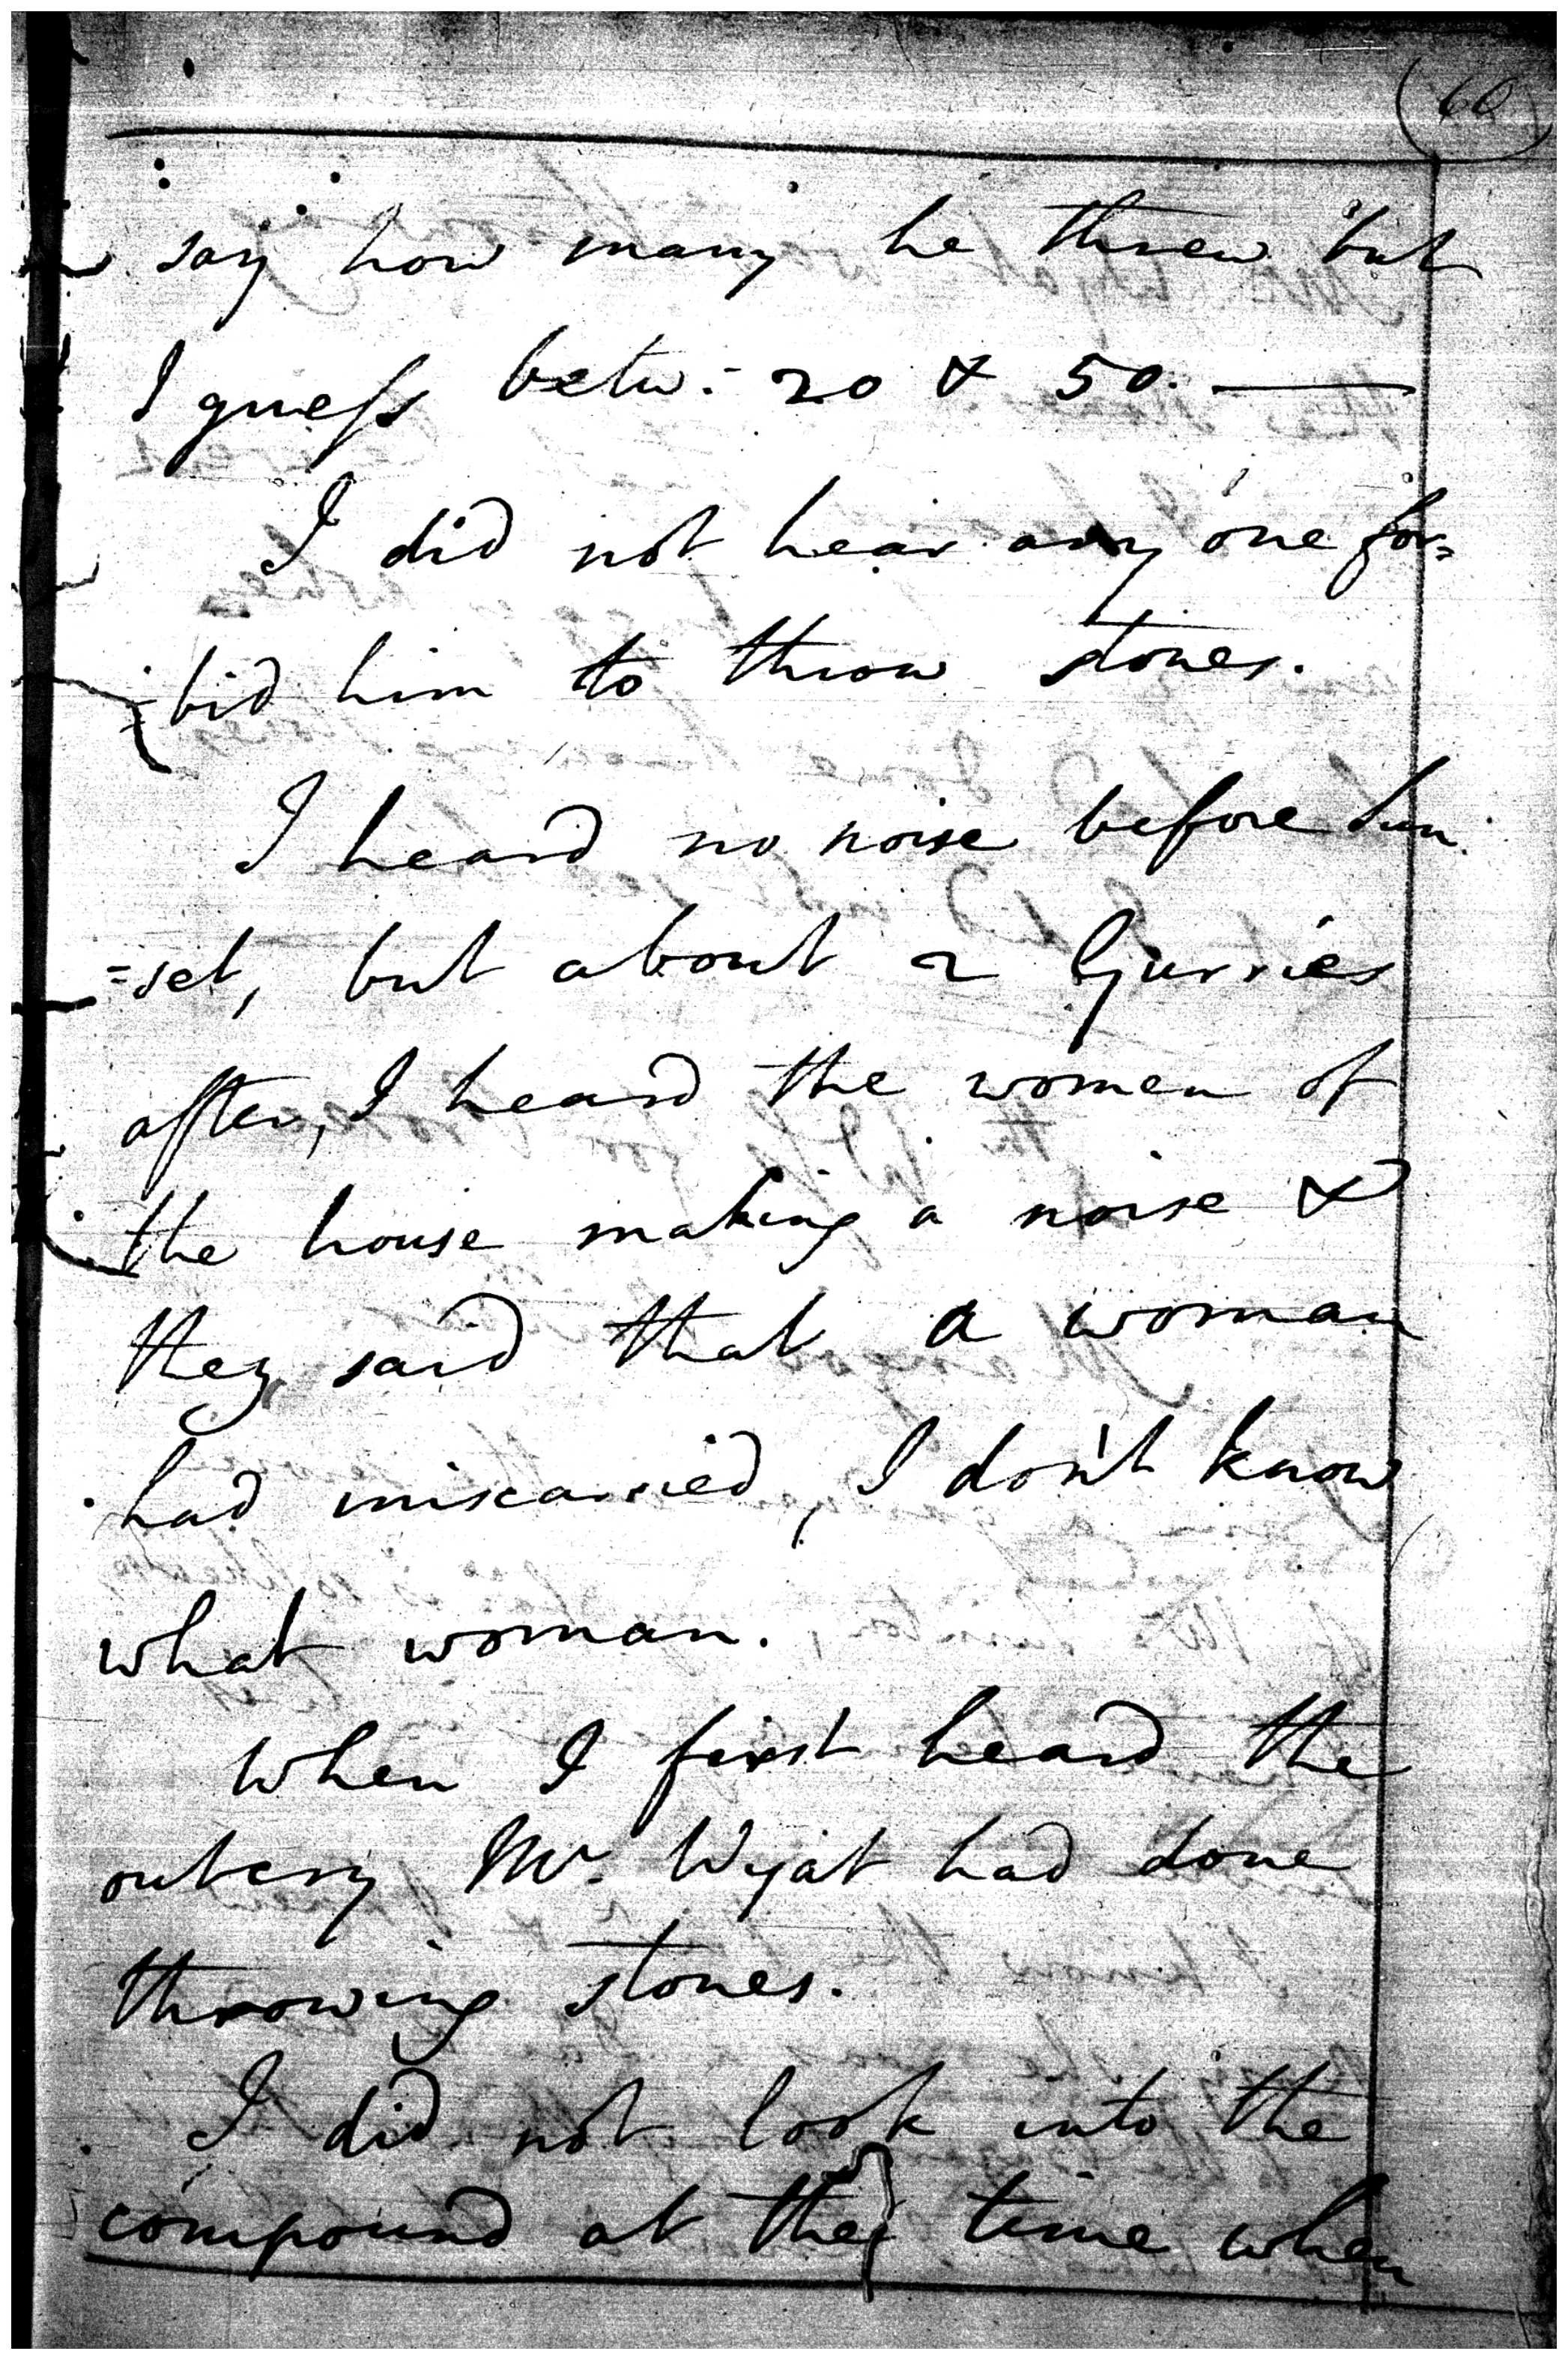 (60)
say how many he threw but
I guess betw: 20 & 50. —
I did not hear any one for=
=bid him to throw stones.
I heard no noise before sun
=set, but about 2 Gurries
after, I heard the women of
the house making a noise &
they said that a woman
had miscarried, I don't know
what woman.
When I first heard the
outcry Mr. Wyat had done
throwing stones.
I did not look into the
compound at the time when